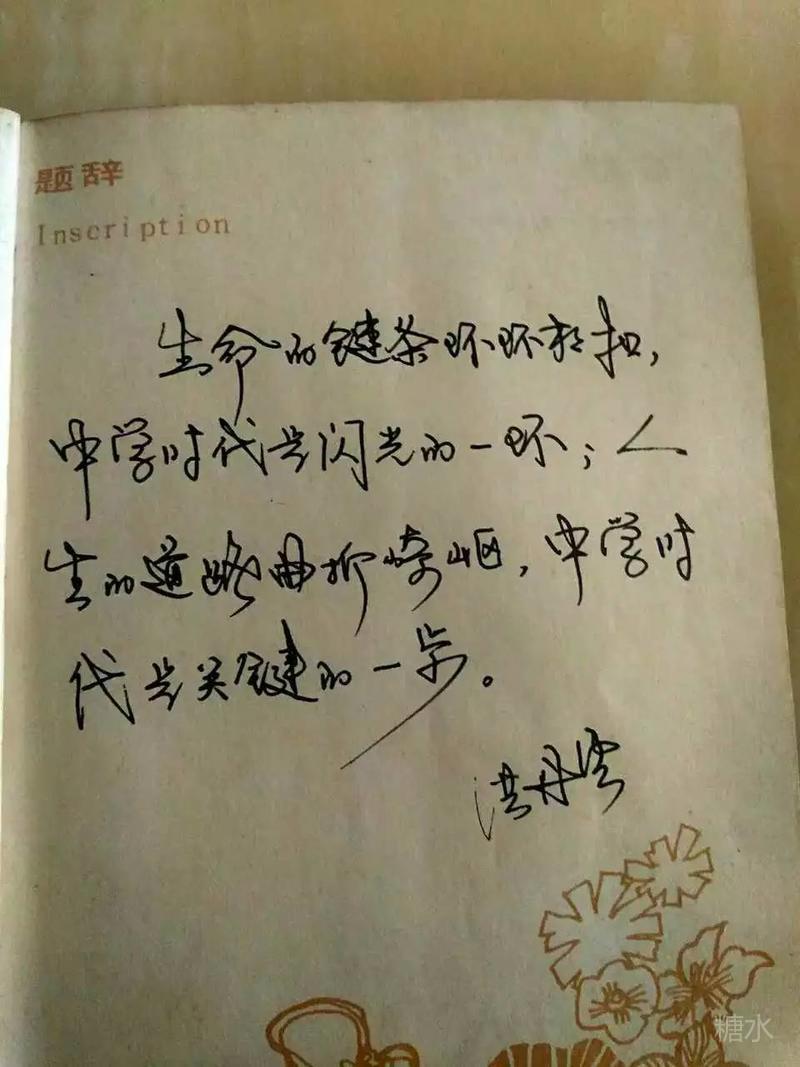 题辞
Inscription
生命的键条环环相扣，
中学时代是闪光的一环；人
生的道路曲折崎岖，中学时
代是关键的一步。
洪丹
糖水